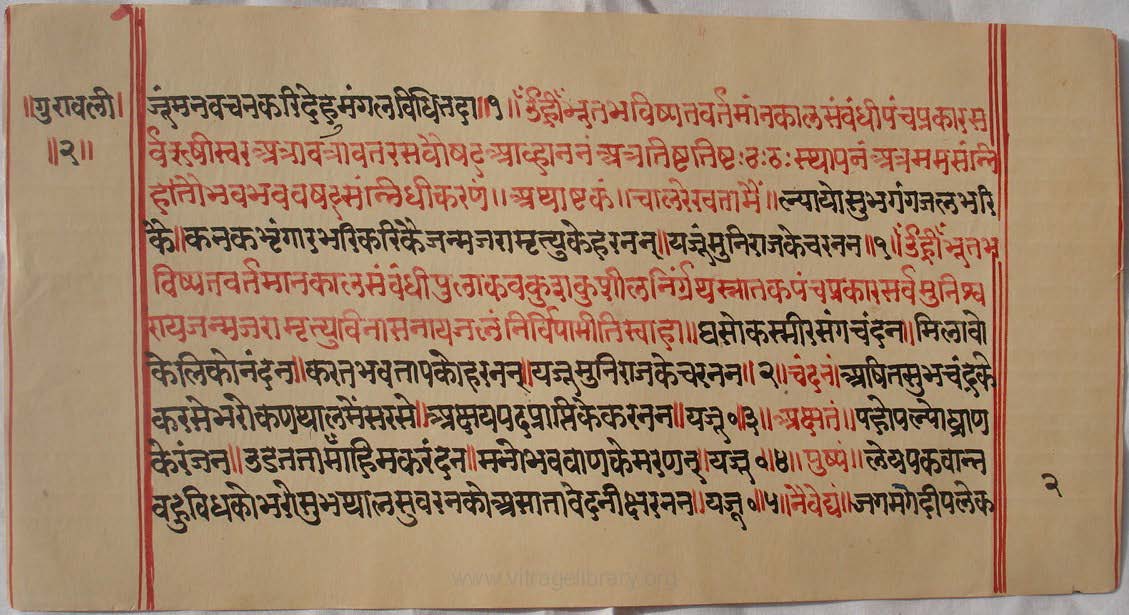 ॥गुरावली।
॥२॥
जूंमनवचनकरिदेहमंगलविधिनदा॥१॥ उँह्रीँभूतभविष्यतवर्तमांनकालसंबंधीपंचप्रकारस
र्वरूषीस्वरअत्रावत्रावतरसवौषट्आव्हाननंअत्रतिष्टतिष्टःठःठःस्थापनंअत्रममसंन्नि
हांतौभवभववषट्सांन्निधीकरणं॥अथाष्टकं॥चालरेखतामैं॥ल्यायोसुभगंगजलभरि
कैं॥कनकभृंगारभरिकरिकैजन्मजरामृत्युकेहरनन्॥यजूंमुनिराजकेचरनन॥१॥उँह्रीँभूतभ
विष्यतवर्तमानकालसंबंधीपुलाकवकुशकुशीलनिर्ग्रंथस्नातकपंचप्रकारसर्वमुनिश्व
रायजन्मजरामृत्युविनासनायजलंनिर्विपामीतिस्वाहा॥घसोकस्मीरसंगचंदन॥मिलावो
केलिकोनंदन॥करतभवतापकोहरनन्॥यजूंमुनिराजकेचरनन॥२॥चंदनं॥अषितसुभचंदके
करसेभरोकणथालमेंसरसे॥अक्षयपदप्राप्तिकेकरनन॥यजूं०॥३॥अक्षतं॥पहोपल्योघ्राण
केरंजन॥उडेनतामाँहिमकरंदन॥मनोभववाणकेमरणन्॥यजूं०॥४॥पुष्पं॥लेयपकवान्न
वहुविधकोभरोसुभथालसुवरनकोअसातावेदनीक्षरनन॥यजू०॥५॥नैवेद्यं॥जगमगेदीपलेक
२
www.vitragelibrary.org